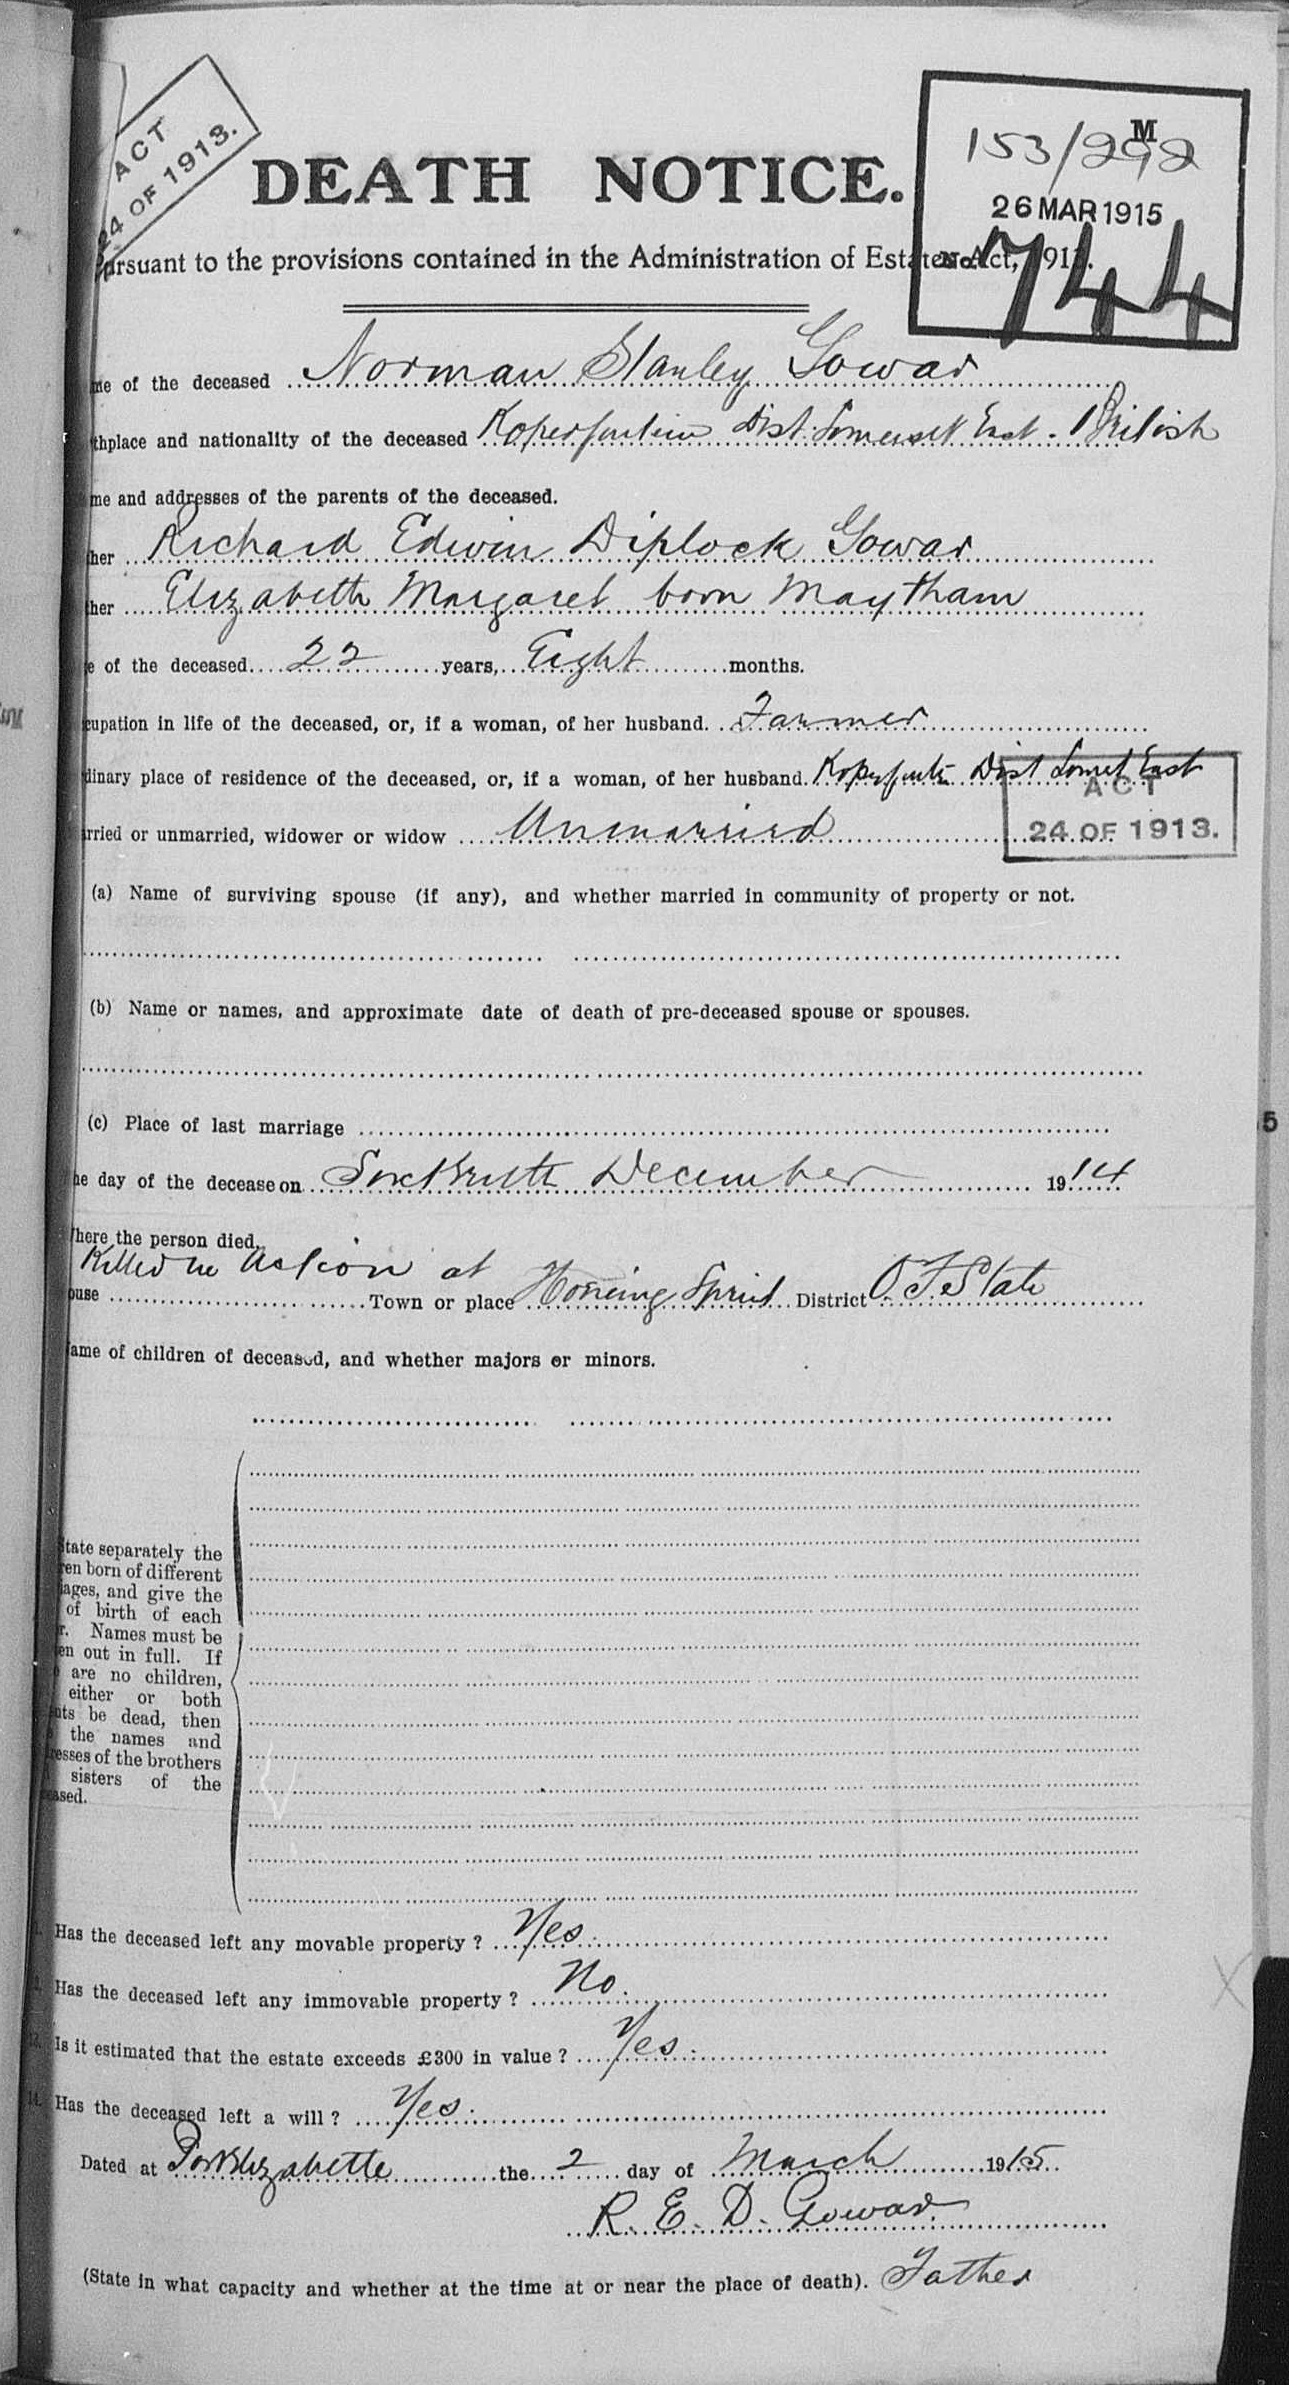 ACT
24 OF 1913.
M
153/292
26 MAR 1915
No. 744
DEATH NOTICE.
Pursuant to the provisions contained in the Administration of Estates Act, 191
me of the deceased Norman Stanley Gowar
thplace and nationality of the deceased Koperfontein Dist. Somerset East. British
me and addresses of the parents of the deceased.
her Richard Edwin Diplock Gowar
her Elizabeth Margaret born Maytham
e of the deceased 22 years, Eight months.
cupation in life of the deceased, or, if a woman, of her husband. Farmer
dinary place of residence of the deceased, or, if a woman, of her husband. Dist East
ACT
24 OF 1913.
rried or unmarried, widower or widow Unmarried
(a) Name of surviving spouse (if any), and whether married in community of property or not.
(b) Name or names, and approximate date of death of pre-deceased spouse or spouses.
(c) Place of last marriage
he day of the decease on December 1914
here the person died.
Killed in Action at
ouse Town or place District O.F. State
ame of children of deceased, and whether majors or minors.
State separately the
ren born of different
iages, and give the
of birth of each
r. Names must be
en out in full. If
are no children,
either or both
nts be dead, then
the names and
resses of the brothers
sisters of the
eased.
Has the deceased left any movable property? Yes.
Has the deceased left any immovable property? No.
Is it estimated that the estate exceeds £300 in value? Yes.
14. Has the deceased left a will? Yes.
Dated at Port Elizabeth the 2 day of March 1915
R. E. D. Gowar
(State in what capacity and whether at the time at or near the place of death). Father
5